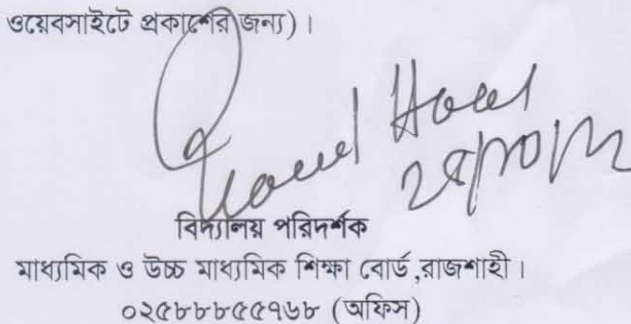 ওয়েবসাইটে প্রকাশের জন্য)।
বিদ্যালয় পরিদর্শক
মাধ্যমিক ও উচ্চ মাধ্যমিক শিক্ষা বোর্ড,রাজশাহী।
০২৫৮৮৮৫৫৭৬৮ (অফিস)